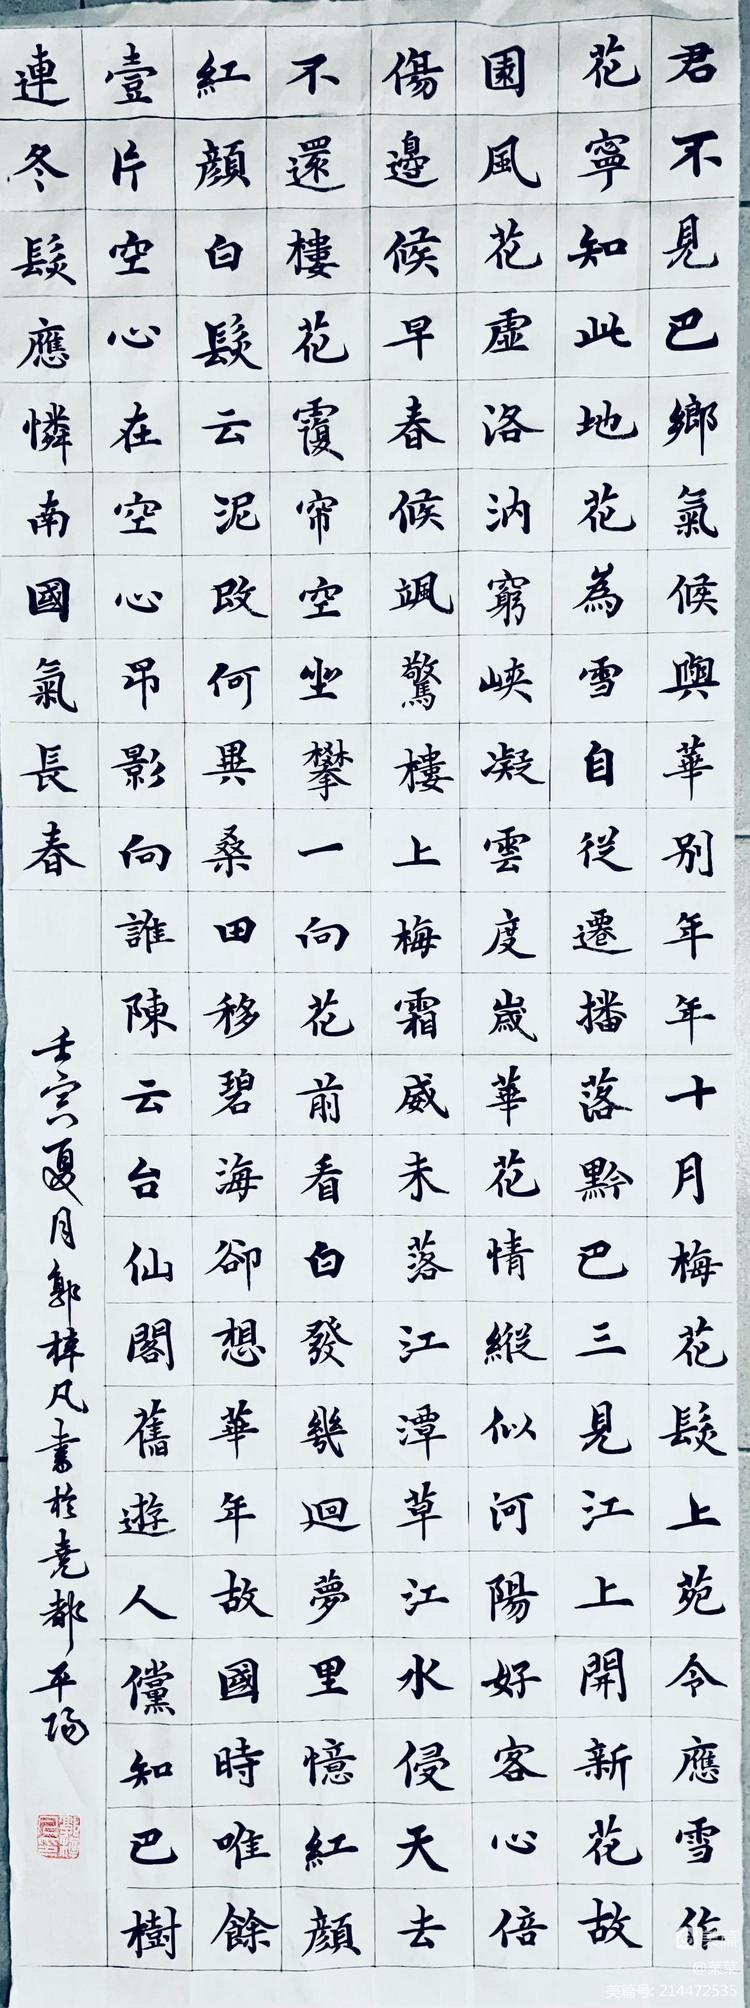 君不見巴鄉氣候與華別年年十月梅花髮上苑令應雪作
花寧知此地花為雪自從遷播落黔巴三見江上開新花故
園風花虛洛汭窮峽凝雲度歲華花情縱似河陽好客心倍
傷邊候早春候颯驚樓上梅霜威未落江潭草江水侵天去
不還樓花覆帘空坐攀一向花前看白發幾迴夢里憶紅顏
紅顏白髮云泥改何異桑田移碧海卻想華年故國時唯餘
壹片空心在空心吊影向誰陳云台仙閣舊遊人儻知巴樹
連冬髮應憐南國氣長春
壬寅夏月郭梓凡書於堯都平陽
美篇
@菜菜
美篇号: 214472535